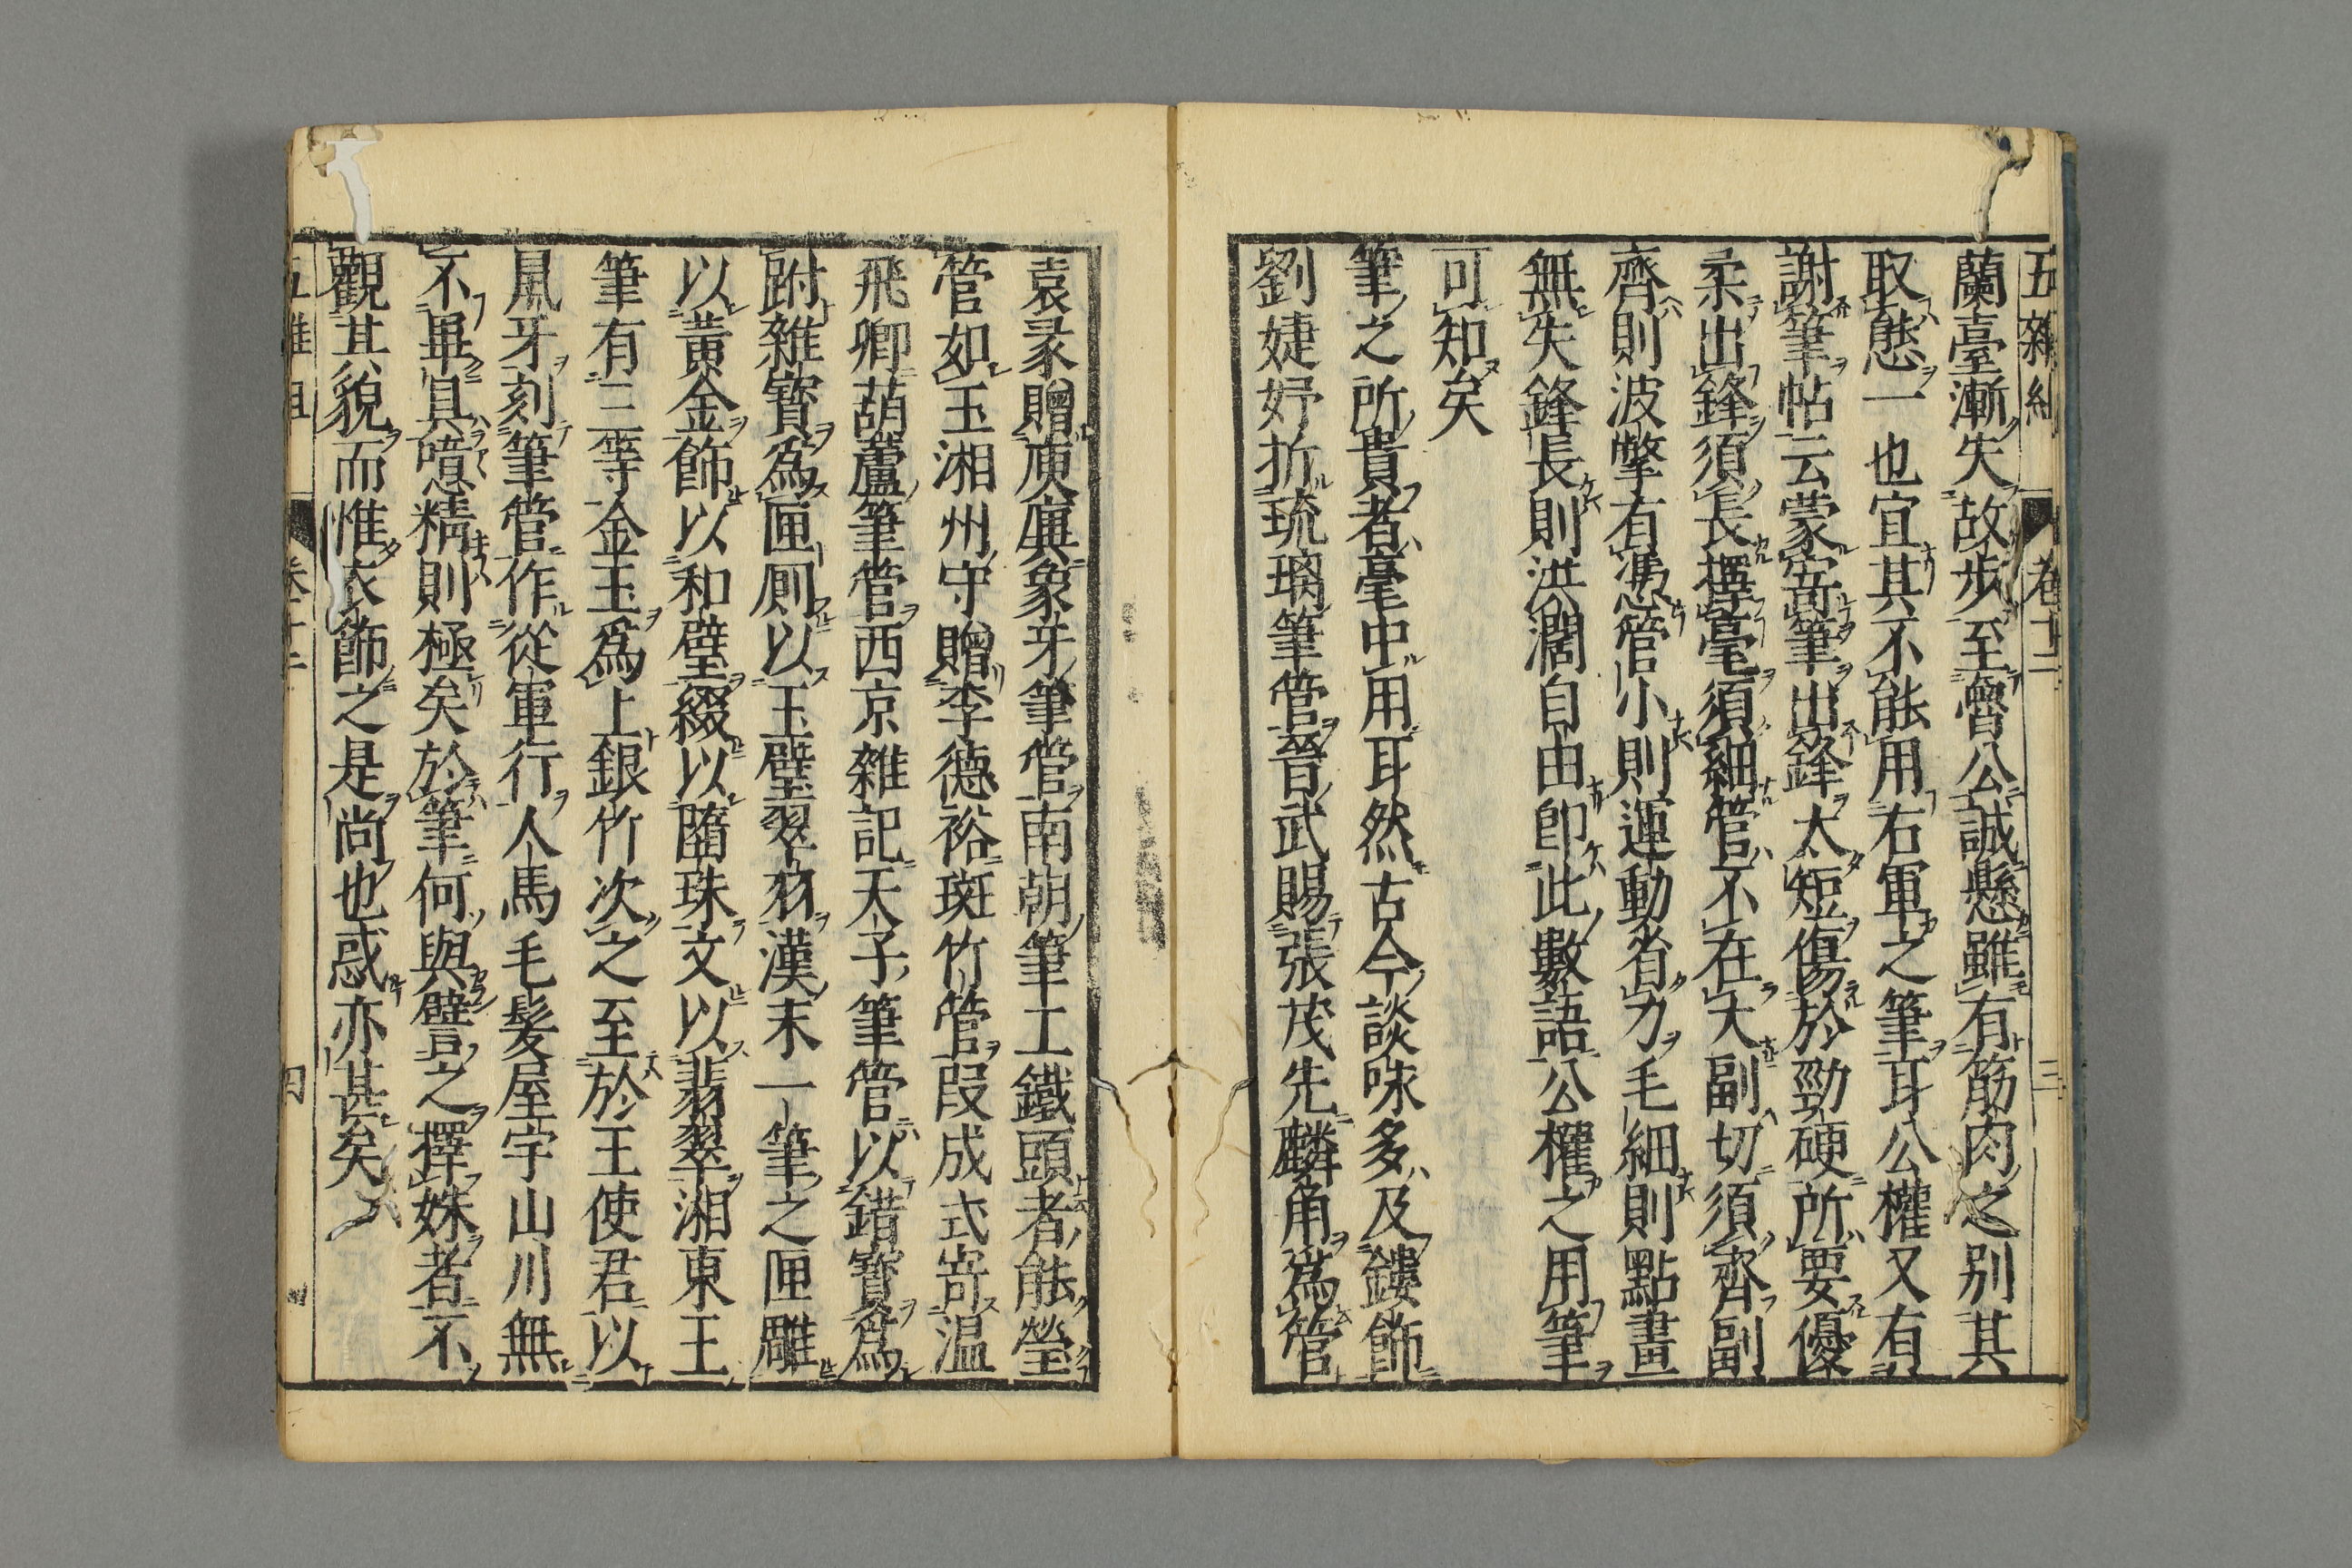 五雜組 卷十二 三
蘭臺漸失故步至魯公誠懸雖有筋肉之別其
取態一也宜其不能用右軍之筆耳公權又有
謝筆帖云蒙寄筆出鋒太短傷於勁硬所要優
柔出鋒須長擇毫須細管不在大副切須齊副
齊則波撆有馮管小則運動省力毛細則點畫
無失鋒長則洪濶自由卽此數語公權之用筆
可知矣
筆之所貴者毫中用耳然古今談咮多及鏤飾
劉婕妤折琉璃筆管晉武賜張茂先麟角爲管
袁彖贈庾廙象牙筆管南朝筆工鐵頭者能瑩
管如玉湘州守贈李德裕斑竹管段成式寄温
飛卿葫蘆筆管西京雜記天子筆管以錯寳爲
跗雜寳爲匣厠以玉璧翠羽漢末一筆之匣雕
以黃金飾以和璧綴以隨珠文以翡翠湘東王
筆有三等金玉爲上銀竹次之至於王使君以
鼠牙刻筆管作從軍行人馬毛髮屋宇山川無
不畢具噫精則極矣於筆何與譬之擇姝者不
觀其貌而惟衣飾之是尚也惑亦甚矣
五雜俎 卷十二 四